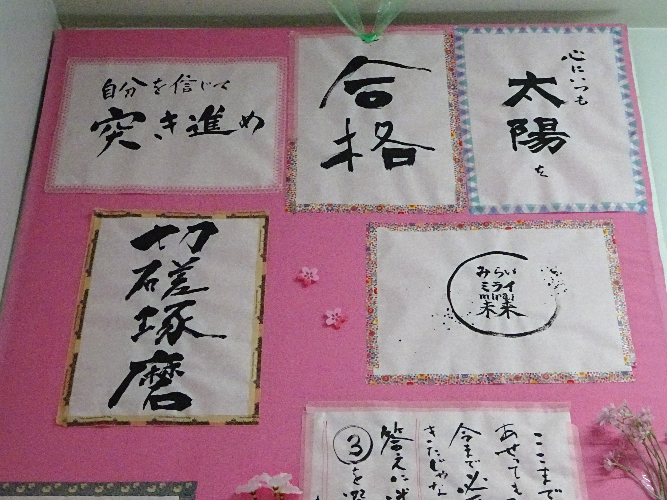 自分を信じて
突き進め
合格
心にいつも
太陽
を
切磋琢磨
みらい
ミライ
mirai
未来
ここまで
あせっても
今まで必
きたじゃな
答えに迷
③を選